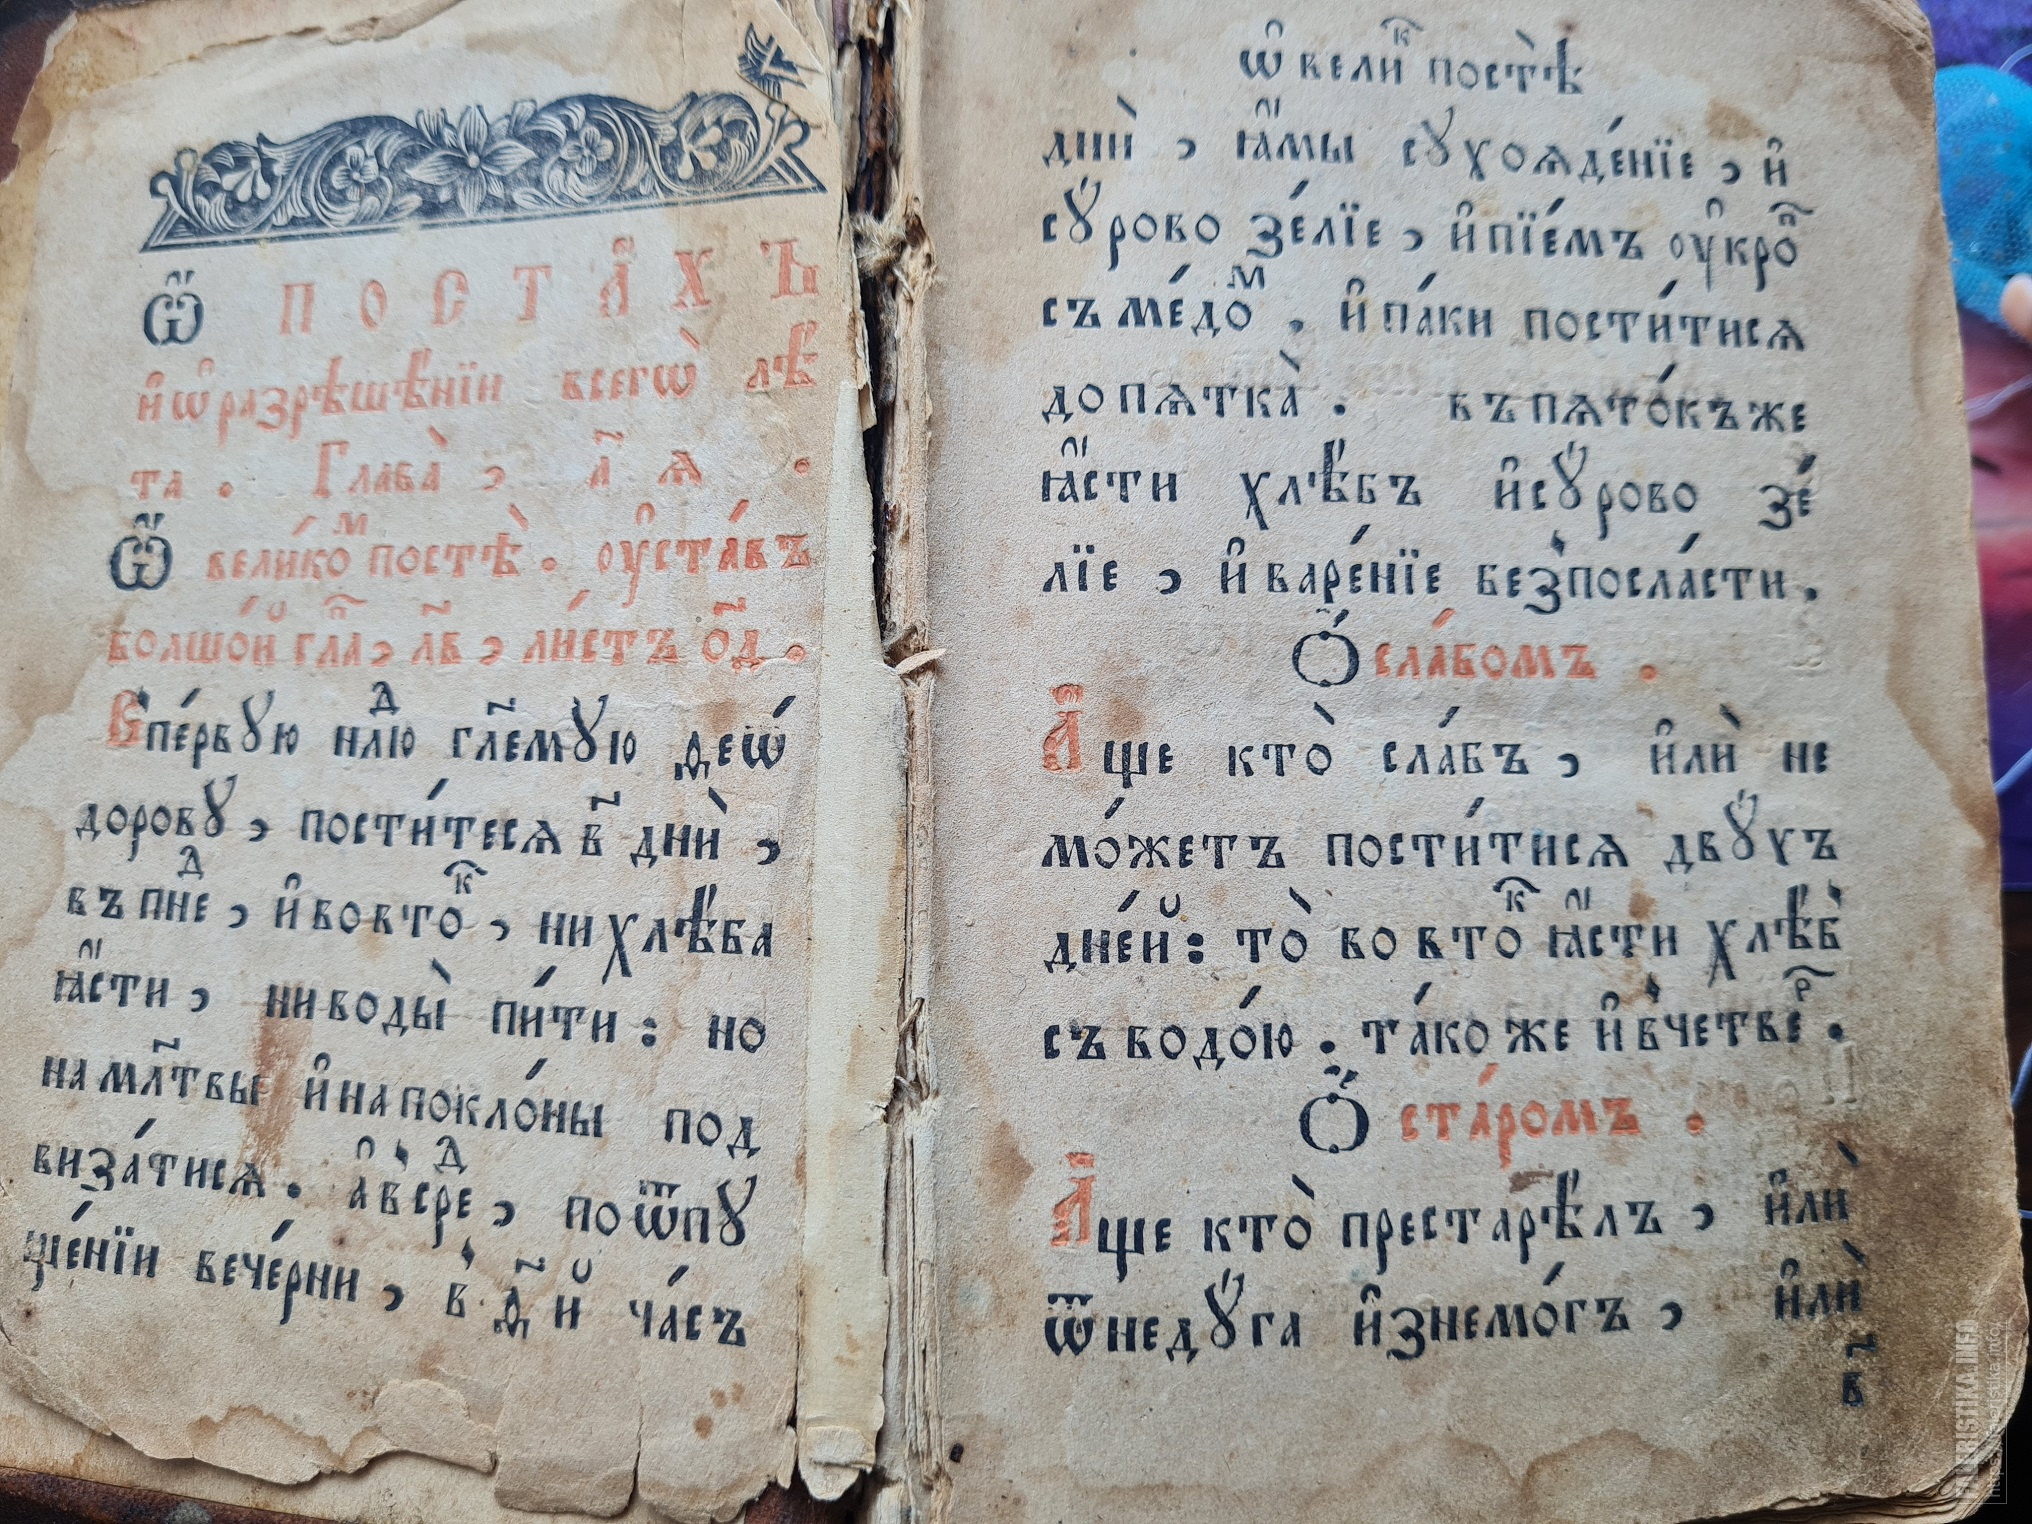 Ѿ ПОСТА́ХЪ
и҆ ѡ҆ разрѣшѣ́нїи всегѡ̀ лѣ́
та . Глава̀ , а҃ ѧ .
Ѿ вели́коⷨ постѣ̀ . ᲂу҆ста́въ
болшо́й гл҃а , л҃в , ли́стъ ѻ҃д .
В пе́рвꙋю нлⷣю гл҃емꙋю ѳеѡ́
доровꙋ , пости́тесѧ в҃ днѝ ,
въ пнеⷣ , и҆ во втоⷦ҇ , ни хлѣ́ба
ꙗ҆́сти , ни воды̀ пи́ти : но
на мл҃твы и҆ на покло́ны под
виза́тисѧ . а҆ в̾ среⷣ , по ѿпꙋ
ще́нїи вече́рни , в̾ ѳ҃й ча́съ
ѡ҆ велиⷦ҇ постѣ̀
днѝ , ꙗ҆́мы сꙋхоѧде́нїе , и҆
сꙋ́рово зе́лїе , и҆ пїе́мъ ᲂу҆кроⷫ҇
съ ме́доⷨ , и҆ па́ки пости́тисѧ
до пѧтка̀ . въ пѧто́къ же
ꙗ҆́сти хлѣ́бъ и҆ сꙋ́рово зе́
лїе , и҆ варе́нїе без̾ посла́сти .
Ѻ҆ сла́бомъ .
А҆́ще кто̀ сла́бъ , и҆лѝ не
мо́жетъ пости́тисѧ двꙋ́хъ
дне́й : то̀ во втоⷦ҇ ꙗ҆́сти хлѣ́б̾
съ водо́ю . та́ко же и҆ в̾ четвеⷬ҇ .
Ѻ҆ ста́ромъ .
А҆́ще кто̀ престарѣ́лъ , и҆лѝ
ѿ недꙋ́га и҆знемо́гъ , и҆лѝ
в҃
FLURISTIKA.INFO